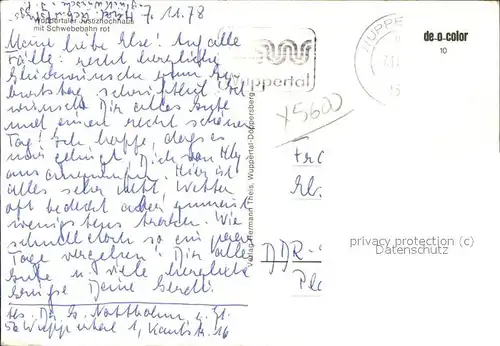 7. 11. 78
Wuppertaler Justizhochhaus
mit Schwebebahn rot
Meine liebe Else! Auf alle
Fälle: recht herzliche
Glückwünsche zum Ge-
burtstag schriftlich! Ich
wünsche Dir alles Gute
und einen recht schönen
Tag! Ich hoffe, dass es
mir gelingt, Dich von hier
aus anzurufen. Hier ist
alles sehr nett. Wetter
oft bedeckt aber zumeist
wenigstens trocken. Wie
schnell doch so ein paar
Tage vergehen! Dir alles
Gute u. viele herzliche
Grüße Deine Gerdi.
Abs. Dr. G. Nottbohm z. Zt.
56 Wuppertal 1, Kantstr. 16
Verlag Hermann Theis, Wuppertal-Döppersberg
Wuppertal
WUPPE
x5600
de-o-color
10
Fra
El.
DDR -
Pla
privacy protection (c)
Datenschutz